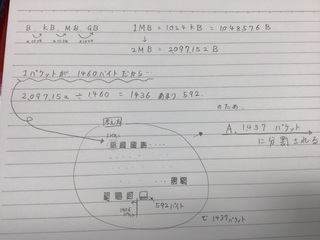 B KB MB GB
×1024 ×1024 ×1024
1MB = 1024 KB = 1048,576 B
↓
2MB = 2097,152 B
1パケットが 1460バイトだから…
2,097,152 ÷ 1460 = 1436 あまり 592.
のため
A, 1437 パケット
に分割される
1436
592バイト
で 1437パケット